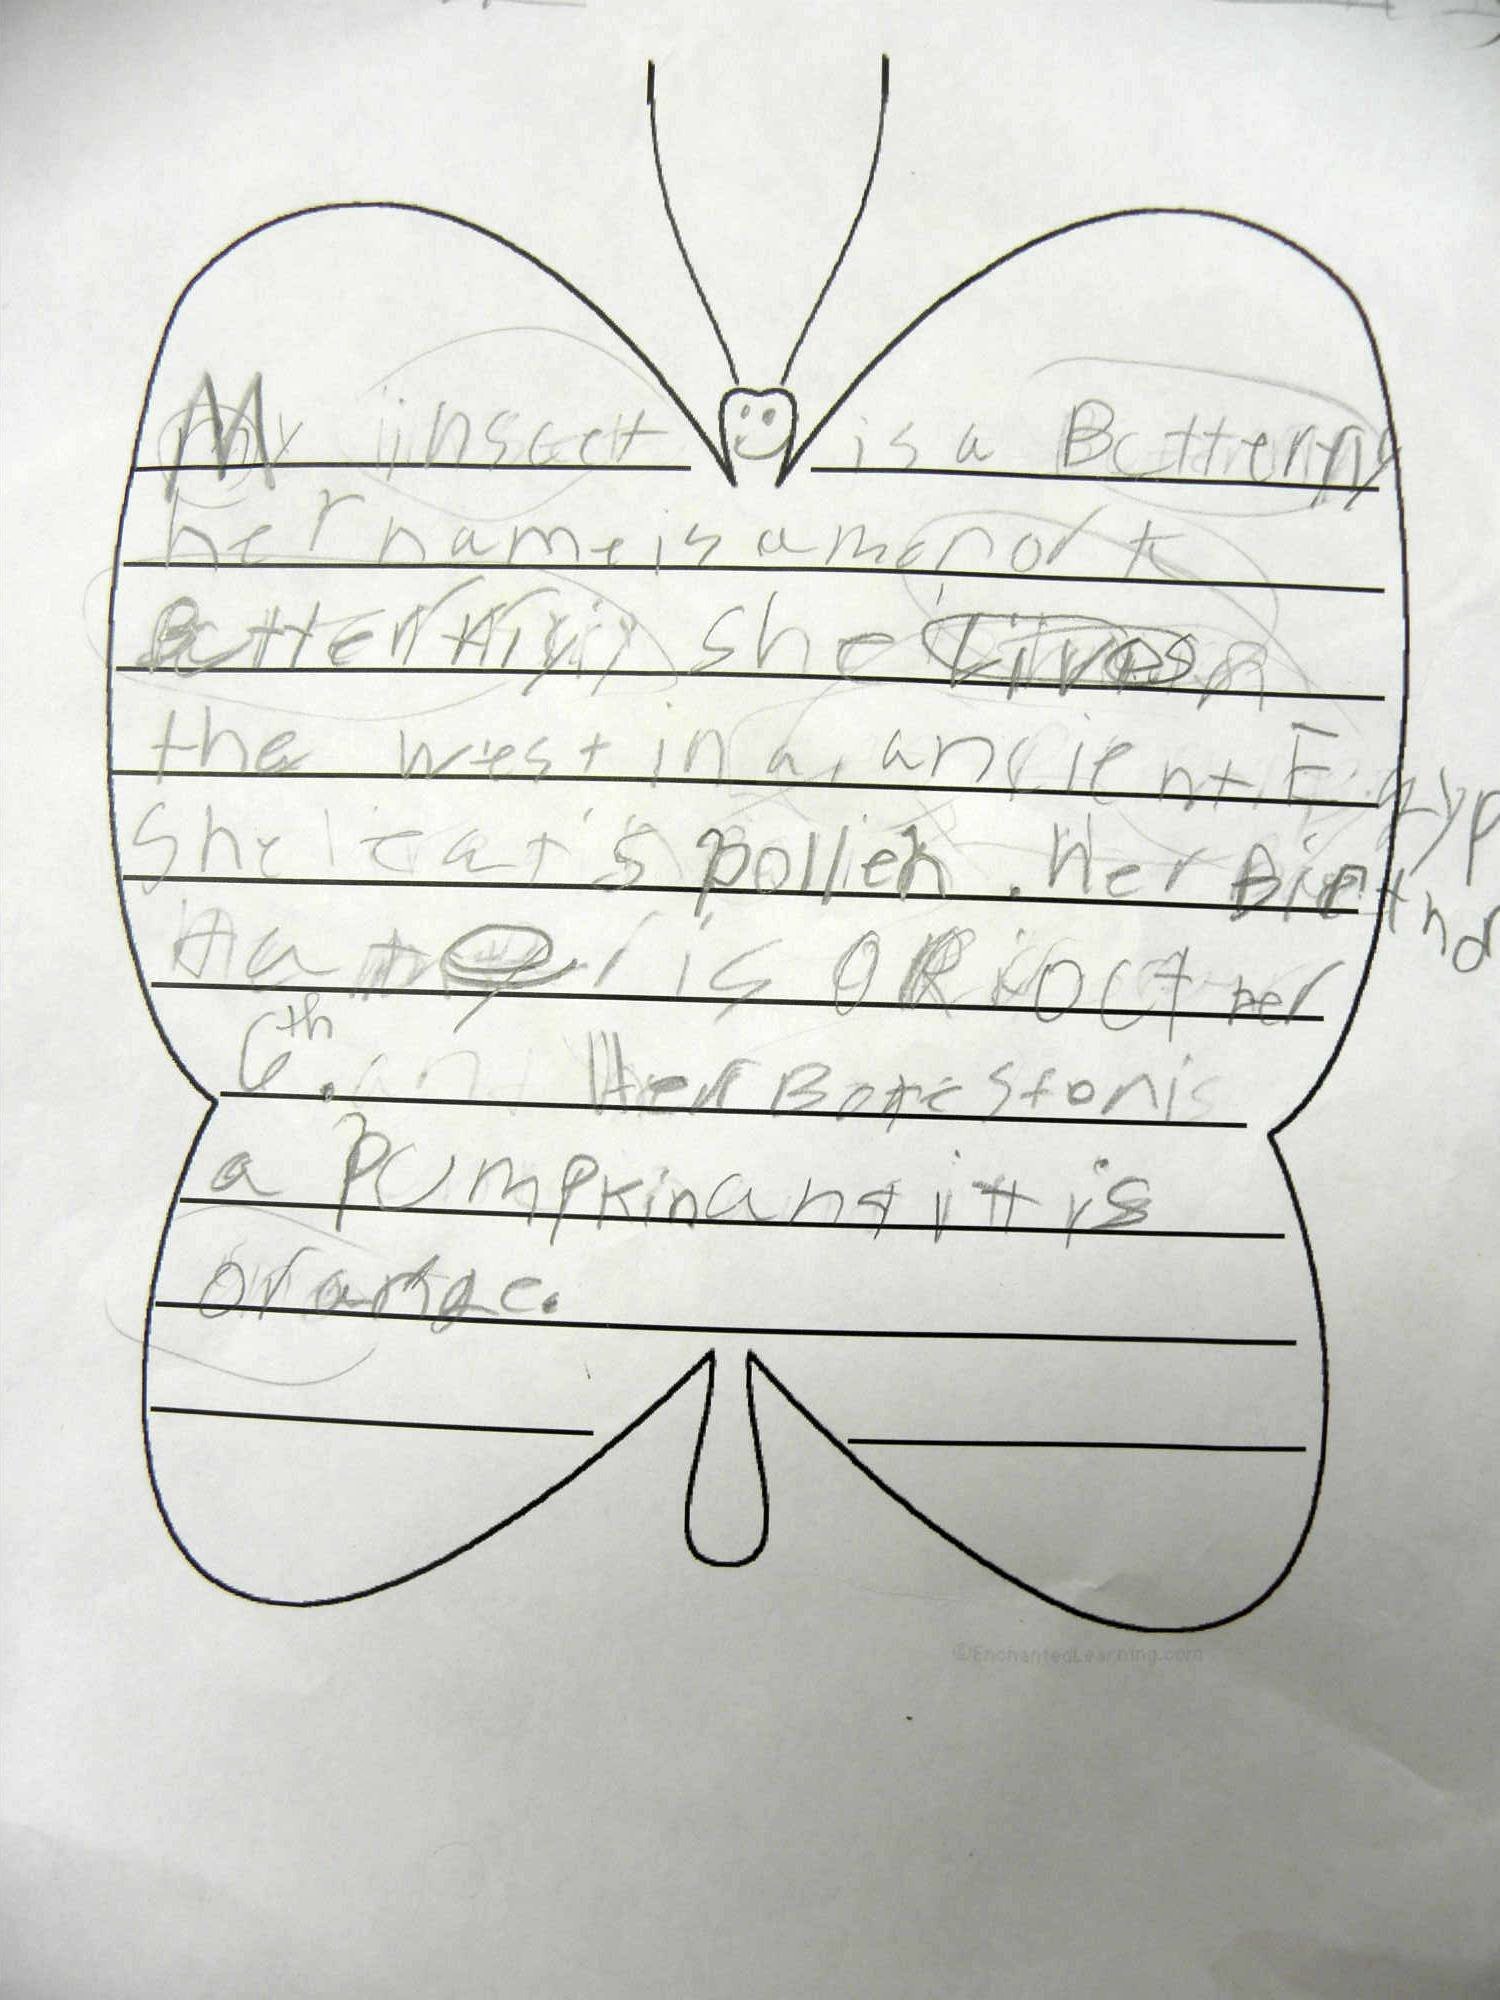 My iinsectt is a Butterffly
her name is a
Butterflyiy she Lives in
the west in a, ancient Egyp
She eat's pollen. Her Birthd
is OR OCt ber
6th. and Her Bote Stonis
a PUmpkin and itt is
orange.
©EnchantedLearning.com